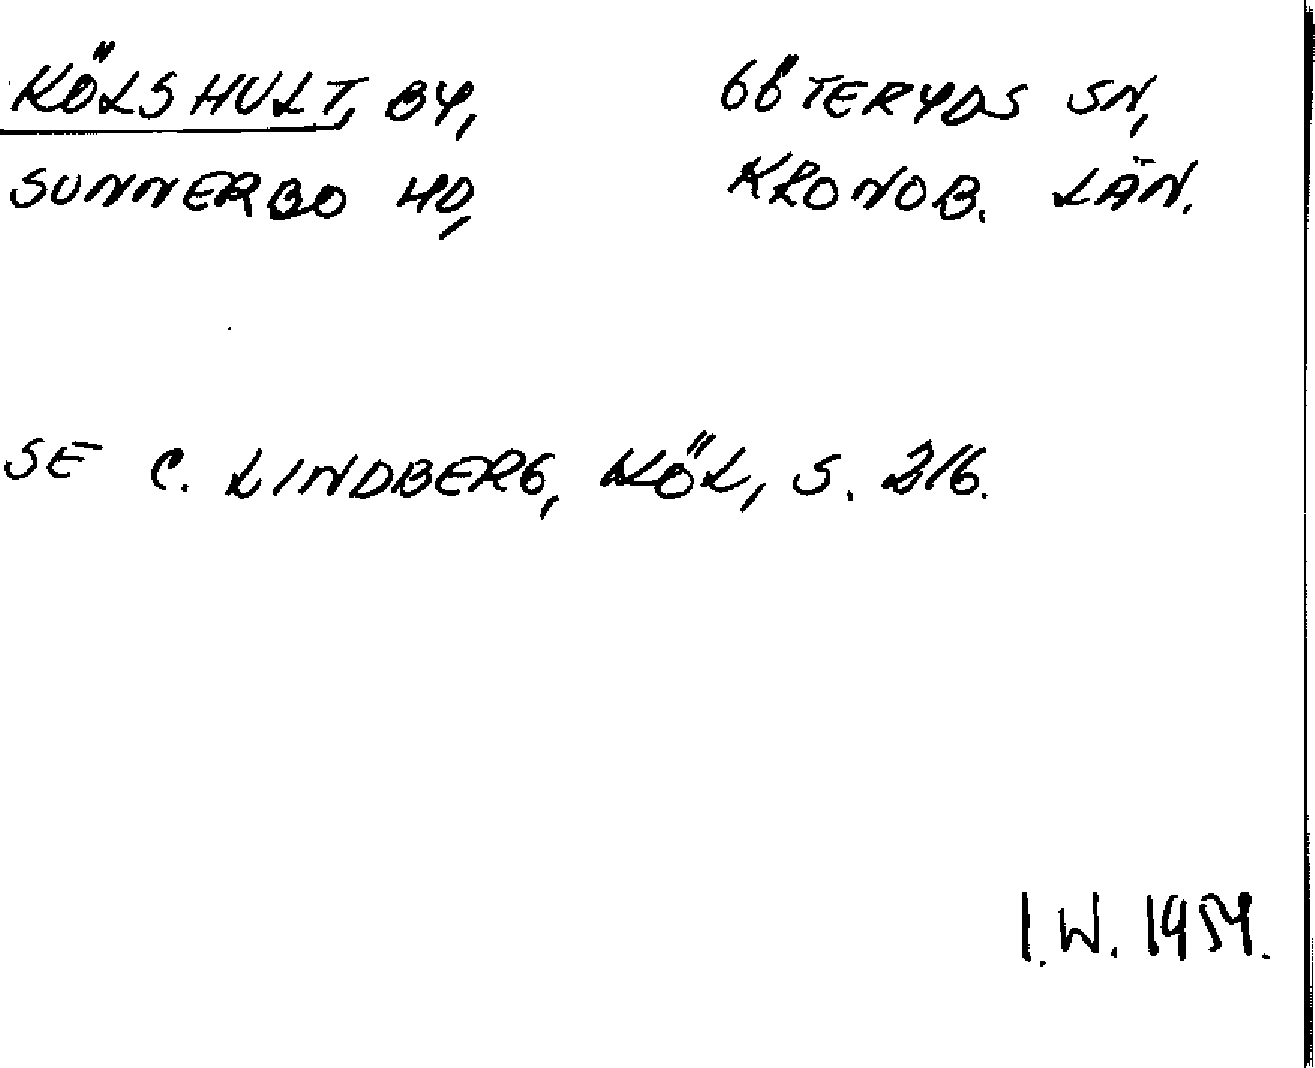 KÖLSHULT, BY, GÖTERYDS SN,
SUNNERBO HD, KRONOB. LÄN.
SE C. LINDBERG, KÖL, S. 216.
I.W. 1954.